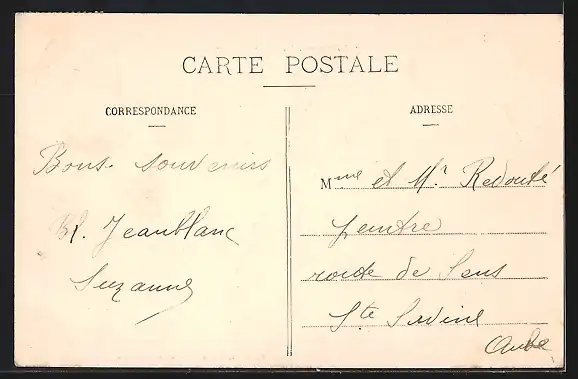 CARTE POSTALE
CORRESPONDANCE
Bons souvenirs
Bl. Jeanblanc
Suzanne
ADRESSE
Mme et Mr. Redouté
peintre
route de Sens
Ste Savine
Aube